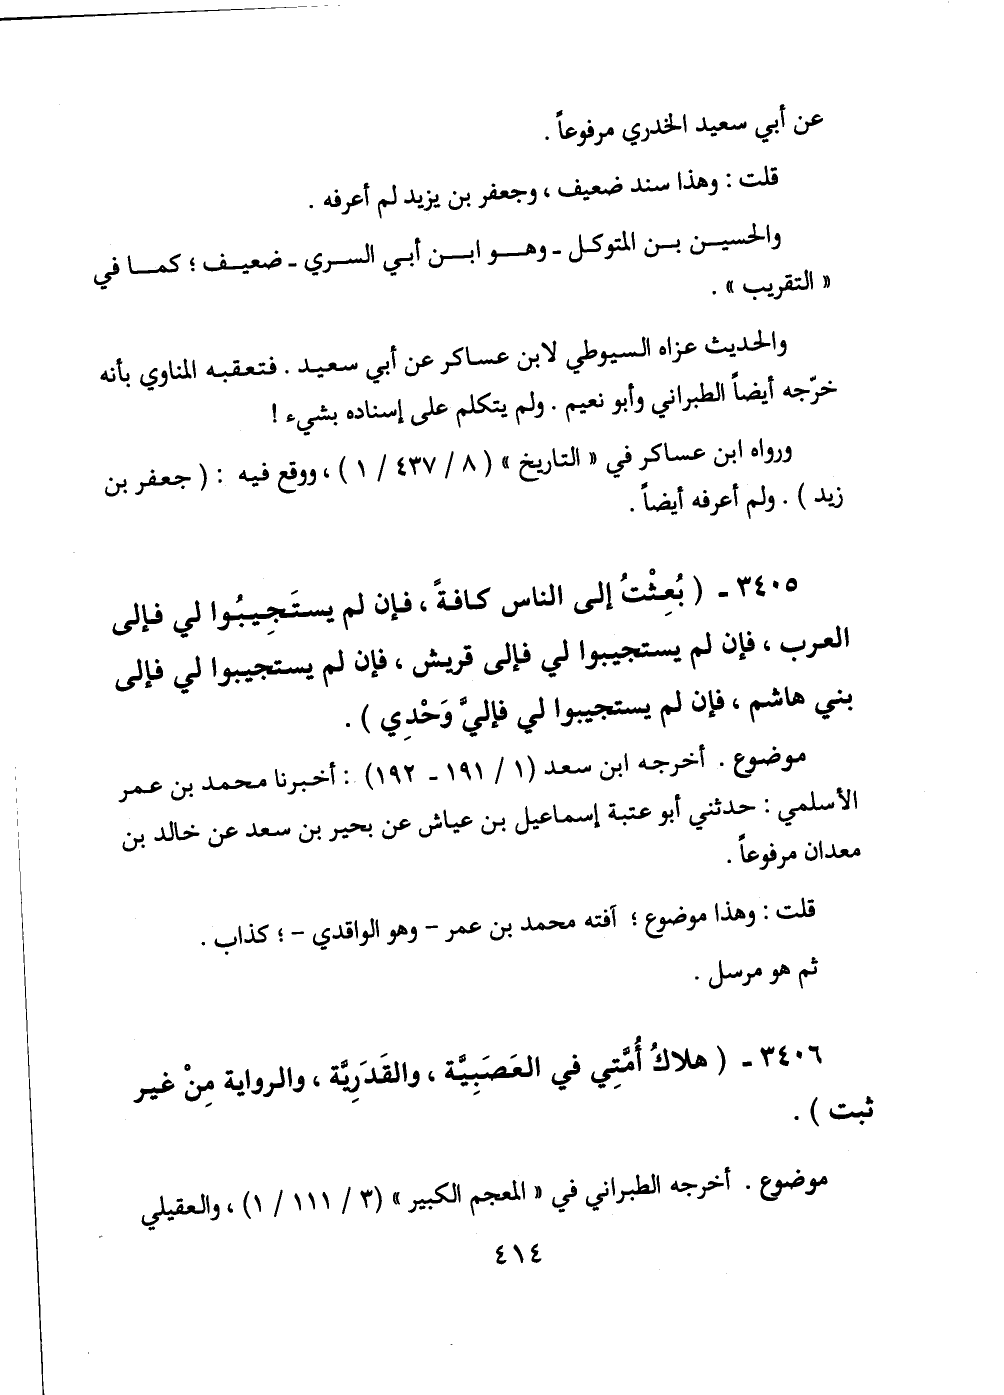 عن أبي سعيد الخدري مرفوعاً .
قلت : وهذا سند ضعيف ، وجعفر بن يزيد لم أعرفه .
والحسيـن بـن المتوكل ـ وهـو ابـن أبـي السـري ـ ضعيـف ؛ كمـا في
« التقريب » .
والحديث عزاه السيوطي لابن عساكر عن أبي سعيد . فتعقبه المناوي بأنه
خرّجه أيضاً الطبراني وأبو نعيم . ولم يتكلم على إسناده بشيء !
ورواه ابن عساكر في « التاريخ » ( ٨ / ٤٣٧ / ١ ) ، ووقع فيه : ( جعفر بن
زيد ) . ولم أعرفه أيضاً .
٣٤٠٥ ـ ( بُعِثْتُ إلى الناس كافةً ، فإن لم يستَجِيبُوا لي فإلى
العرب ، فإن لم يستجيبوا لي فإلى قريش ، فإن لم يستجيبوا لي فإلى
بني هاشم ، فإن لم يستجيبوا لي فإليَّ وَحْدِي ) .
موضوع . أخرجه ابن سعد (١ / ١٩١ ـ ١٩٢) : أخبرنا محمد بن عمر
الأسلمي : حدثني أبو عتبة إسماعيل بن عياش عن بحير بن سعد عن خالد بن
معدان مرفوعاً .
قلت : وهذا موضوع ؛ آفته محمد بن عمر – وهو الواقدي – ؛ كذاب .
ثم هو مرسل .
٣٤٠٦ ـ ( هلاكُ أُمَّتِي في العَصَبِيَّة ، والقَدَرِيَّة ، والرواية مِنْ غير
ثبت ) .
موضوع . أخرجه الطبراني في « المعجم الكبير » (٣ / ١١١ / ١) ، والعقيلي
٤١٤